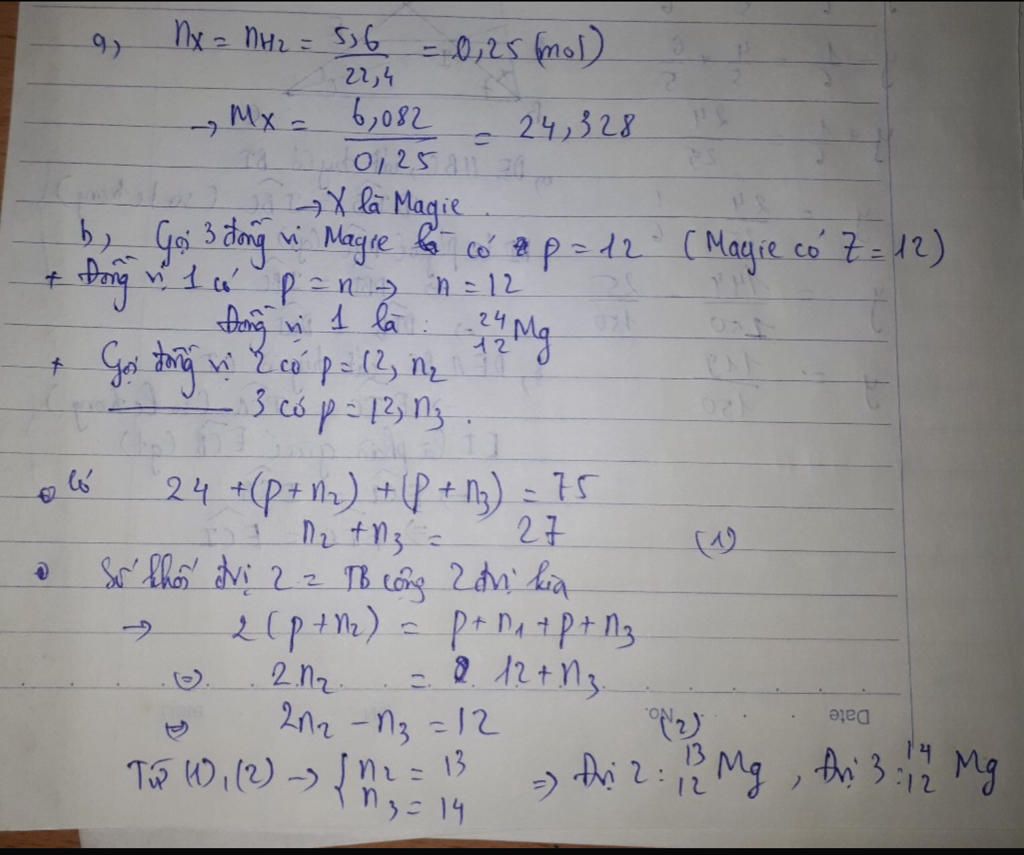 a, nX = nH2 = 5,6/22,4 = 0,25 (mol)
→ MX = 6,082/0,25 = 24,328
→ X là Magie.
b, Gọi 3 đồng vị Magie có p = 12 (Magie có Z = 12)
+ Đồng vị 1 có p = n → n = 12
Đồng vị 1 là: ²⁴₁₂Mg
+ Gọi đồng vị 2 có p = 12, n2
——— 3 có p = 12, n3.
Có 24 + (p + n2) + (p + n3) = 75
n2 + n3 = 27 (1)
Số khối đvị 2 = TB cộng 2 đvị kia
→ 2(p + n2) = p + n1 + p + n3
⇔ 2n2 = 12 + n3
⇔ 2n2 - n3 = 12 (2)
No. Date
Từ (1), (2) → { n2 = 13
n3 = 14 ⇒ đvị 2: ¹³₁₂Mg, đvị 3: ¹⁴₁₂Mg